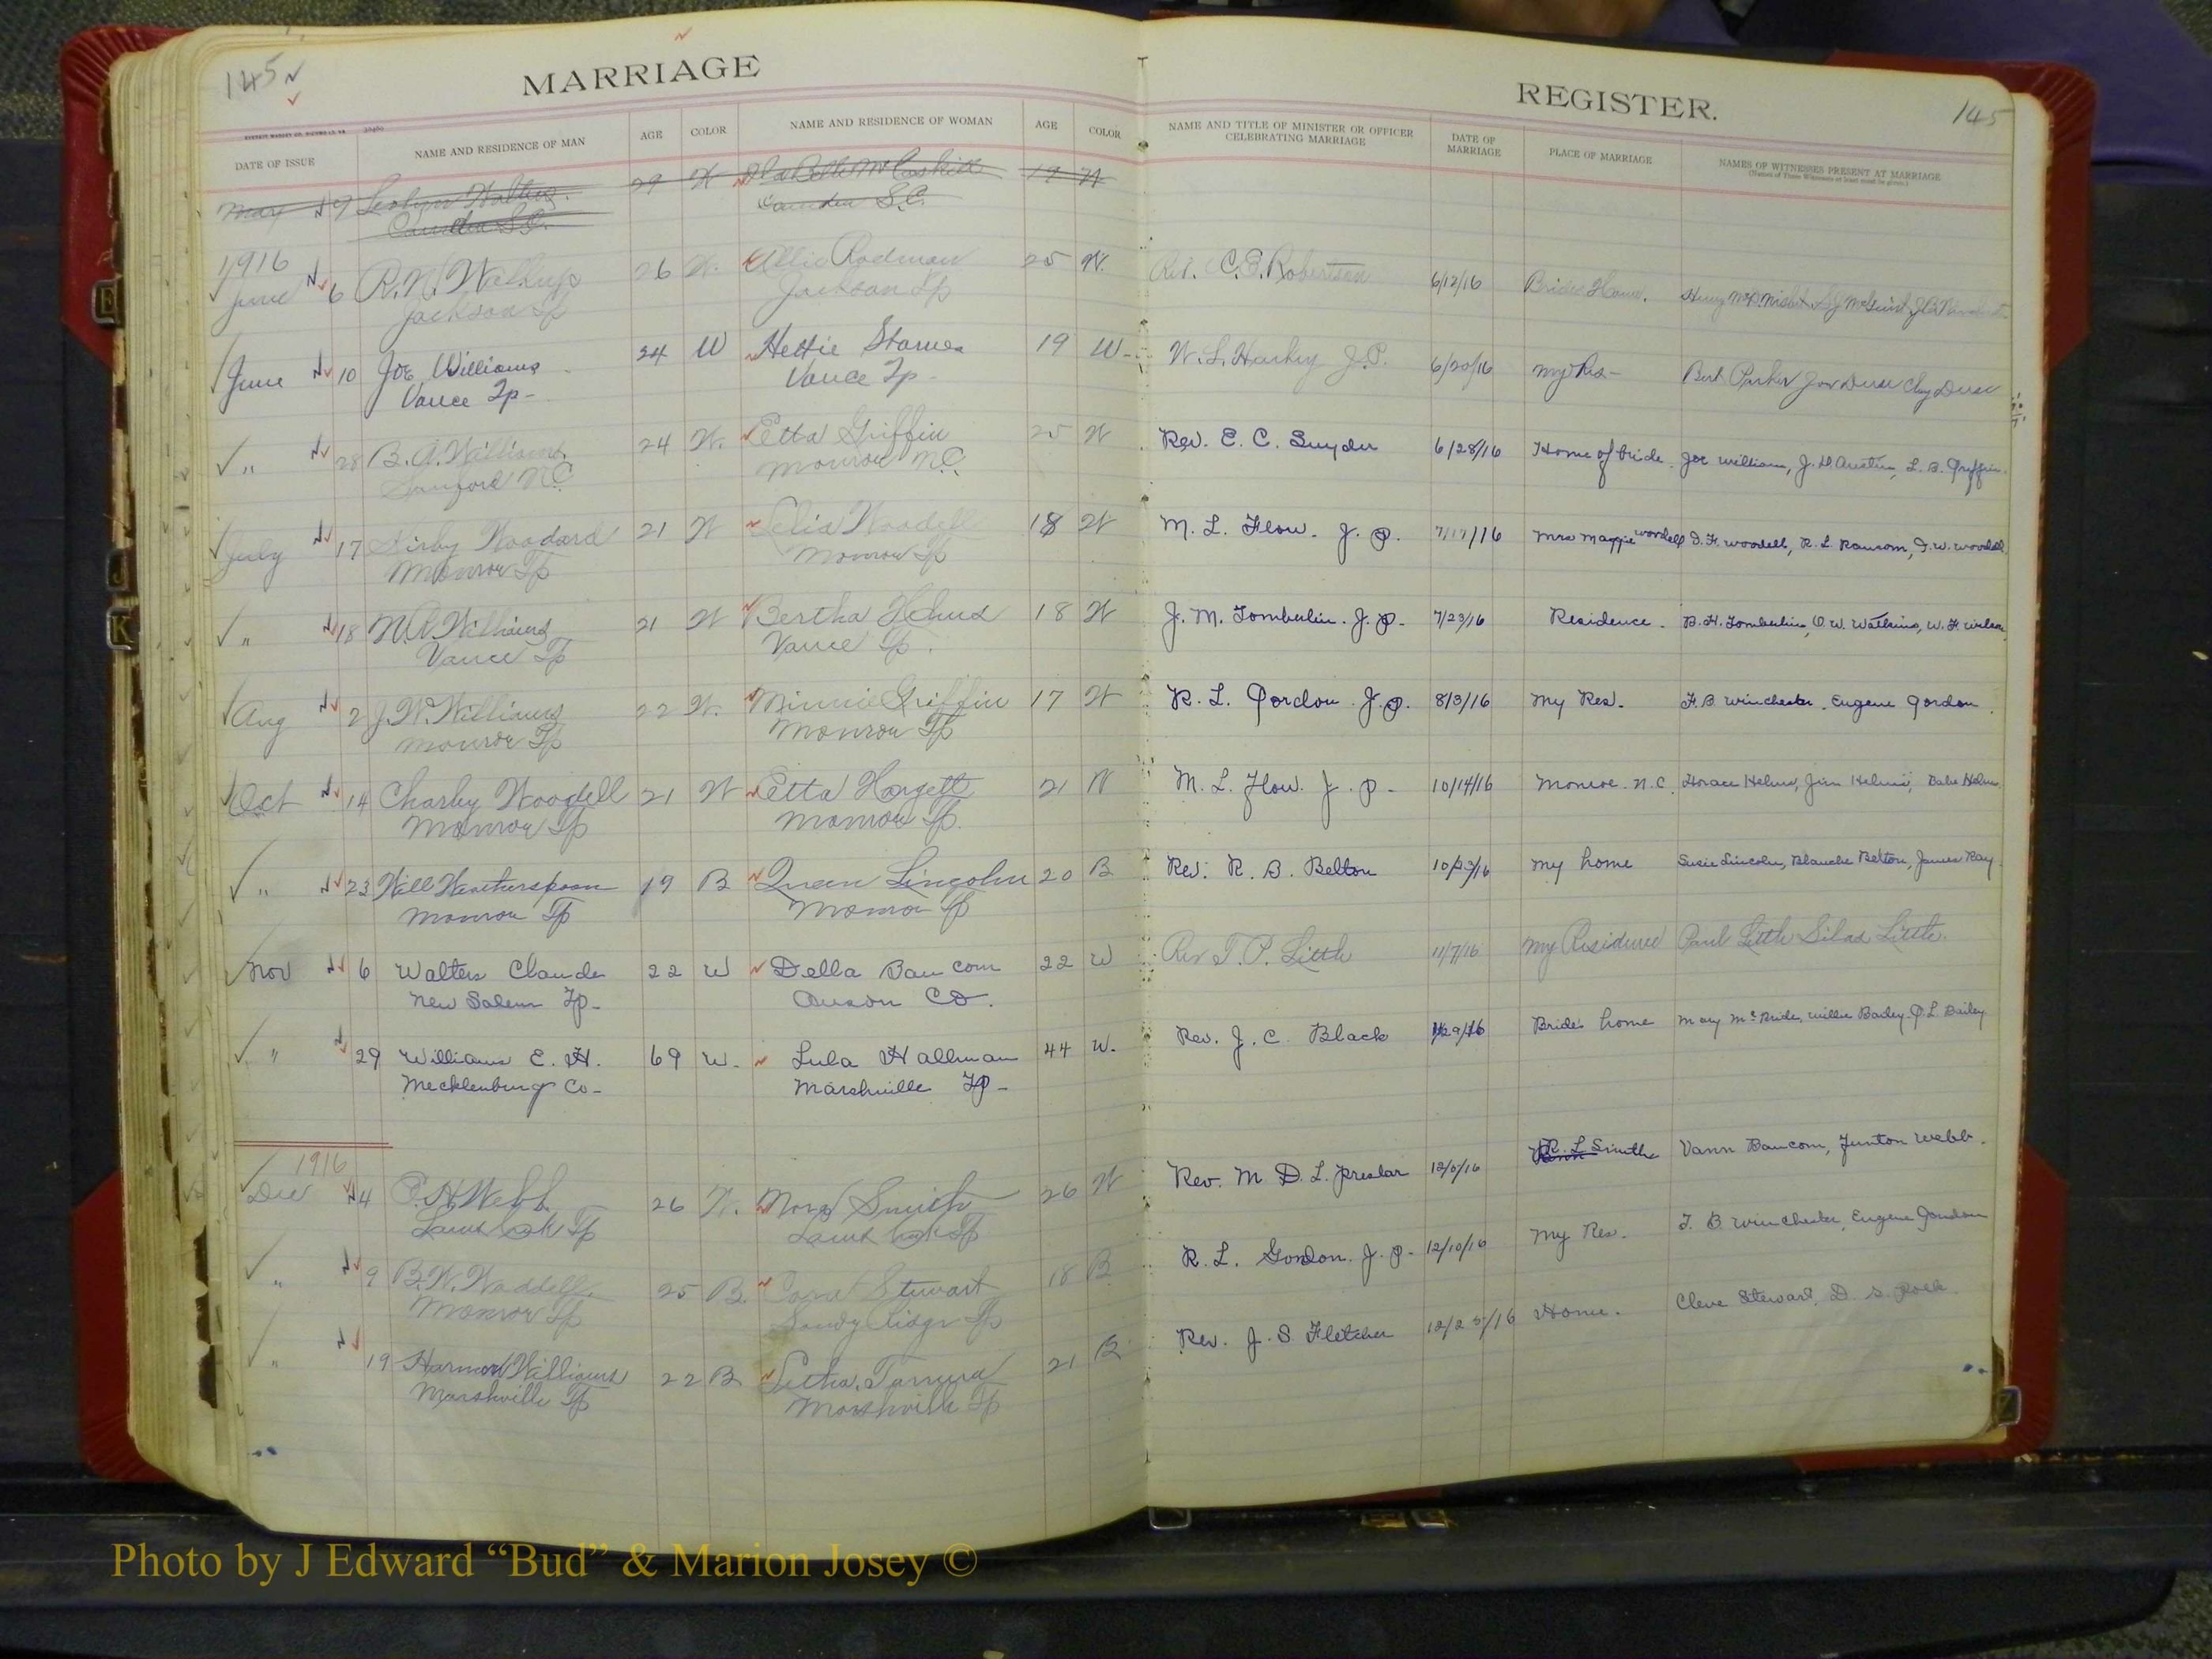 145
MARRIAGE
DATE OF ISSUE NAME AND RESIDENCE OF MAN AGE COLOR NAME AND RESIDENCE OF WOMAN AGE COLOR
May 9 29 W Ila Belle McCaskill 19 W
Camden S.C. Camden S.C.
1916
June 6 R.N. Walkup 26 W. Allie Rodman 25 W.
Jackson Tp Jackson Tp
June 10 Joe Williams 24 W Hettie Starnes 19 W-
Vance Tp- Vance Tp-
" 28 B.A. Williams 24 W. Etta Griffin 25 W
Sanford N.C. Monroe N.C.
July 17 Kirby Woodard 21 W Celia Woodell 18 W
Monroe Tp Monroe Tp
" 18 Williams 21 W Bertha Helms 18 W
Vance Tp Vance Tp.
Aug 2 J.W. Williams 22 W. Minnie Griffin 17 W
Monroe Tp Monroe Tp
Oct 14 Charley Woodell 21 W Etta Hargett 21 W
Monroe Tp Monroe Tp.
" 23 Will Weatherspoon 19 B Queen Lincoln 20 B
Monroe Tp Monroe Tp
Nov 6 Walters Claude 22 W Della Baucom 22 W
New Salem Tp- Anson Co.
" 29 Williams E. H. 69 W. Lula Hallman 44 W.
Mecklenburg Co- Marshville Tp-
1916
Dec 4 Webb 26 W. Nora Smith 26 W
Lanes Creek Tp Lanes Creek Tp
" 9 B.W. Waddell 25 B. Cora Stewart 18 B
Monroe Tp Sandy Ridge Tp
" 19 Harmon Williams 22 B Letha 21 B
Marshville Tp Marshville Tp
REGISTER.
145
NAME AND TITLE OF MINISTER OR OFFICER CELEBRATING MARRIAGE DATE OF MARRIAGE PLACE OF MARRIAGE NAMES OF WITNESSES PRESENT AT MARRIAGE
(Names of Three Witnesses at least must be given.)
Rev. C.E. Robertson 6/12/16 Brides Home.
W.L. Harkey J.P. 6/20/16 My Res- Bert Parker
Rev. E. C. Snyder 6/28/16 Home of bride. Joe Williams, J. D. Austin, L. B. Griffin.
M. L. Flow. J. P. 7/17/16 Mrs Maggie Woodell D. F. Woodell, R. L. Ransom, J. W. Woodell
J. M. Tomberlin. J. P. 7/23/16 Residence. B. H. Tomberlin, O. W. Watkins, W. F.
R. L. Gordon. J. P. 8/3/16 My Res. F. B. Winchester, Eugene Gordon.
M. L. Flow. J. P. - 10/14/16 Monroe. N. C. Horace Helms, Jim Helms, Babe Helms
Rev. R. B. Belton 10/23/16 My home Susie Lincoln, Blanche Belton, James Ray
Rev T. P. Little 11/7/16 My Residence Paul Little Silas Little.
Rev. J. C. Black 11/29/16 Brides home Mary McBride, Willie Bailey. P. L. Bailey
Rev. M. D. L. Preslar 12/5/16 R. L. Smith Vann Baucom, Junton Webb.
R. L. Gordon. J. P. - 12/10/16 My Res. F. B. Winchester, Eugene Gordon
Rev. J. S. Fletcher 12/25/16 Home. Cleve Stewart, D. S. Polk.
J
K
Photo by J Edward “Bud” & Marion Josey ©